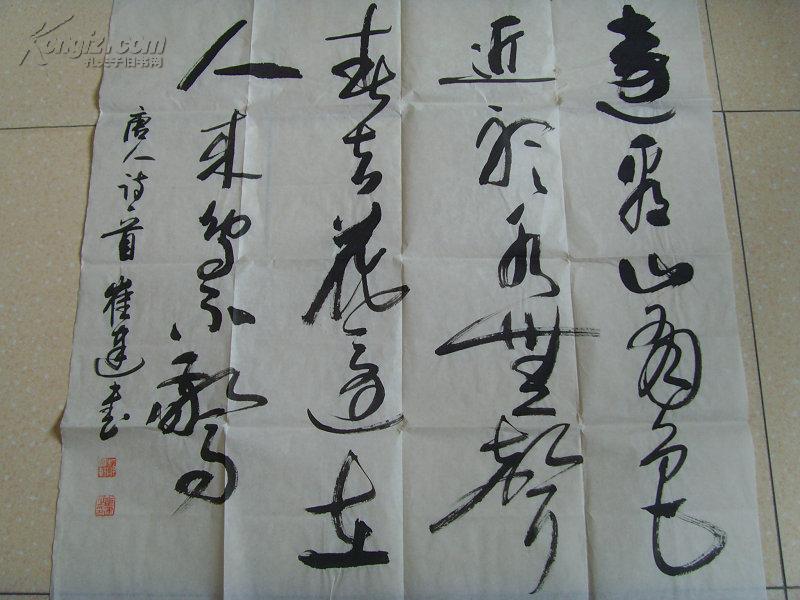 遠看山有色
近聽水無聲
春去花還在
人來鳥不驚
唐人詩一首 崔建書
Kongfz.com
孔夫子旧书网